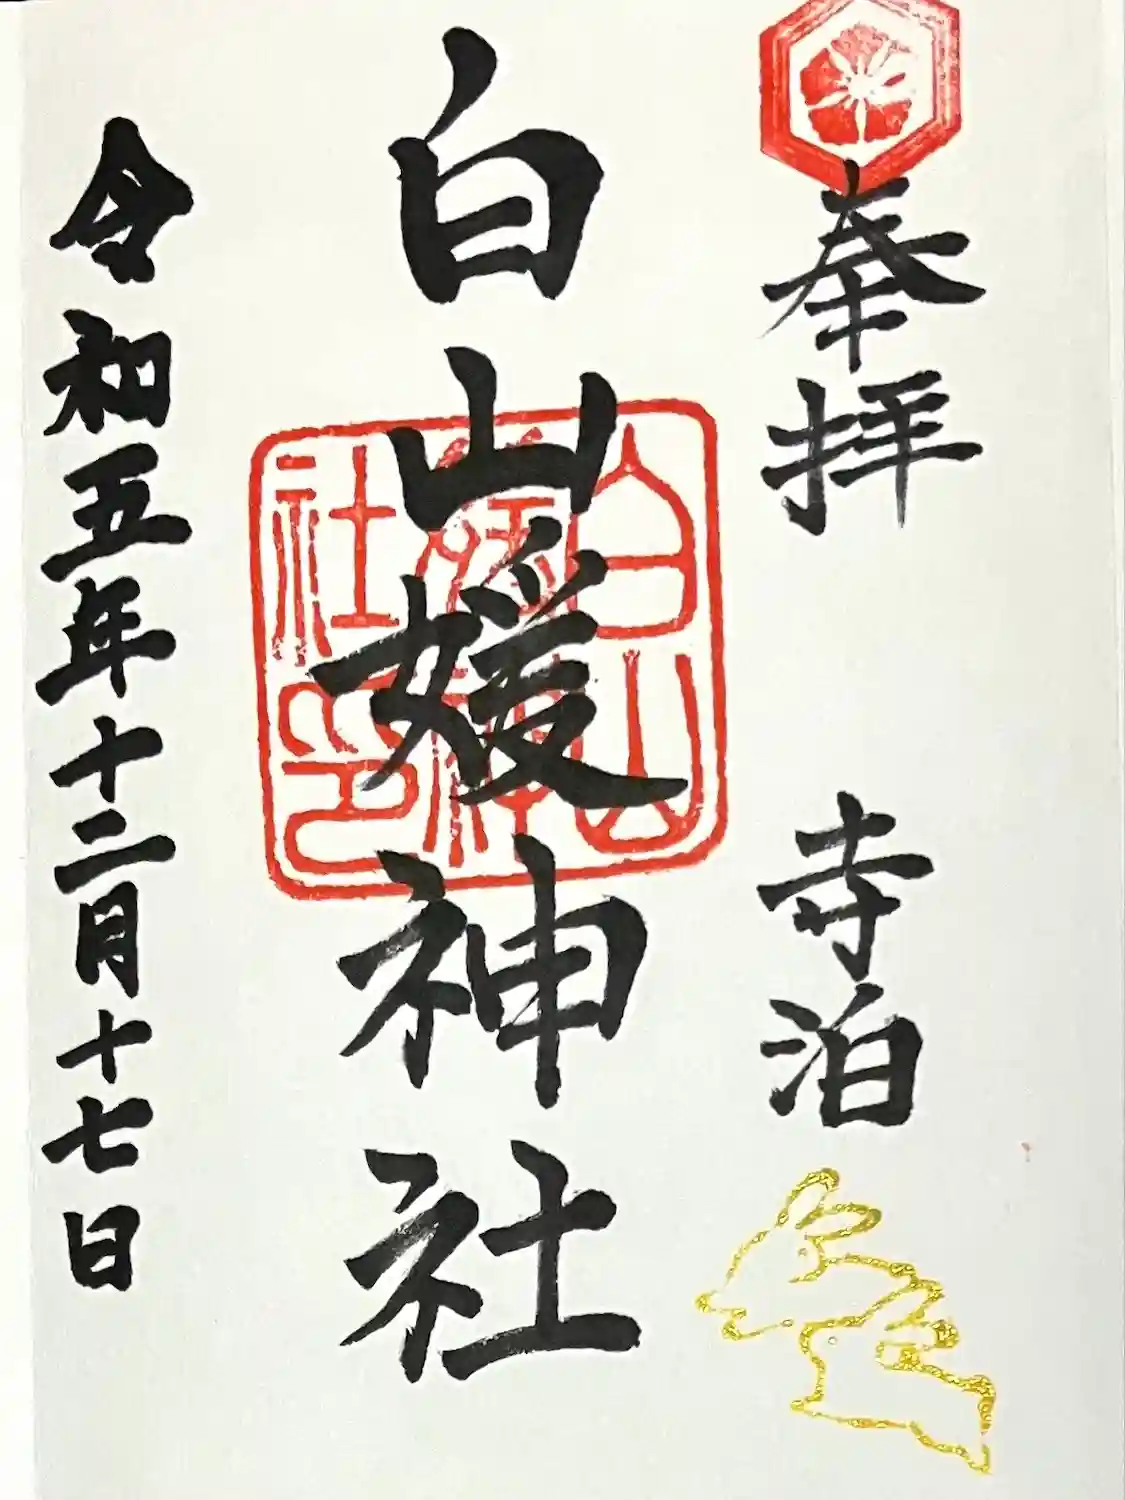 奉拝　寺泊
白山媛神社
白山媛神社印
令和五年十二月十七日